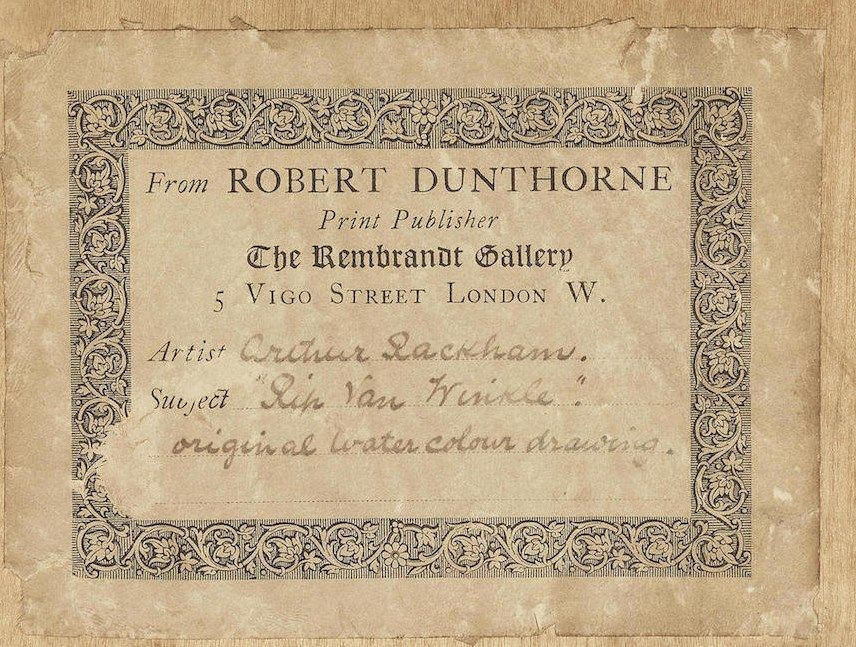 From ROBERT DUNTHORNE
Print Publisher
The Rembrandt Gallery
5 VIGO STREET LONDON W.
Artist Arthur Rackham.
Subject "Rip Van Winkle".
original water colour drawing.